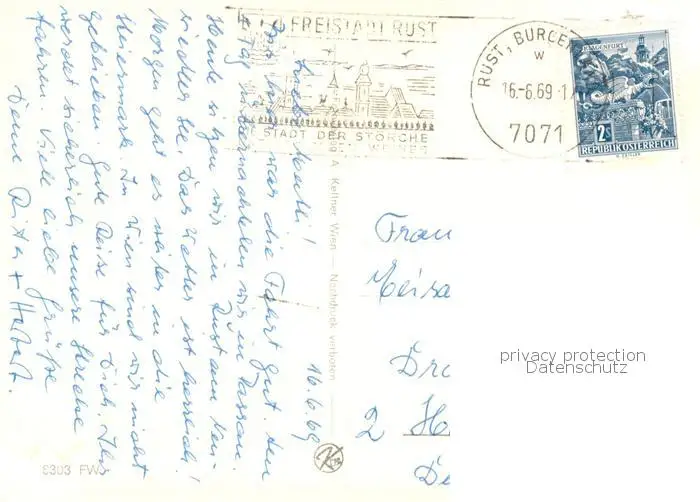 FREISTADT RUST
STADT DER STÖRCHE
RUST, BURGEN
W
16.-6.69-1
7071
KLAGENFURT
2S
REPUBLIK ÖSTERREICH
16.6.69
Liebe Mutti!
war die Fahrt gut. Den
übernachteten wir in Passau.
Heute sitzen wir in Rust am Neu-
siedler See. Das Wetter ist herrlich!
Morgen geht es weiter in die
Steiermark. In Wien sind wir nicht
geblieben. Gute Reise für Dich. Ihr
werdet sicherlich unsere Strecke
fahren. Viele liebe Grüße
Deine Rita + Herbert.
A. Kellner Wien — Nachdruck verboten
8303 FW
Frau
Meisa
Dr
2 H
De
privacy protection
Datenschutz